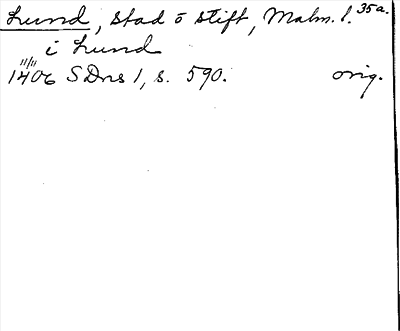 Lund, stad o stift, Malm. l. 35a.
i Lund
11/11
1406 SDns 1, s. 590. orig.